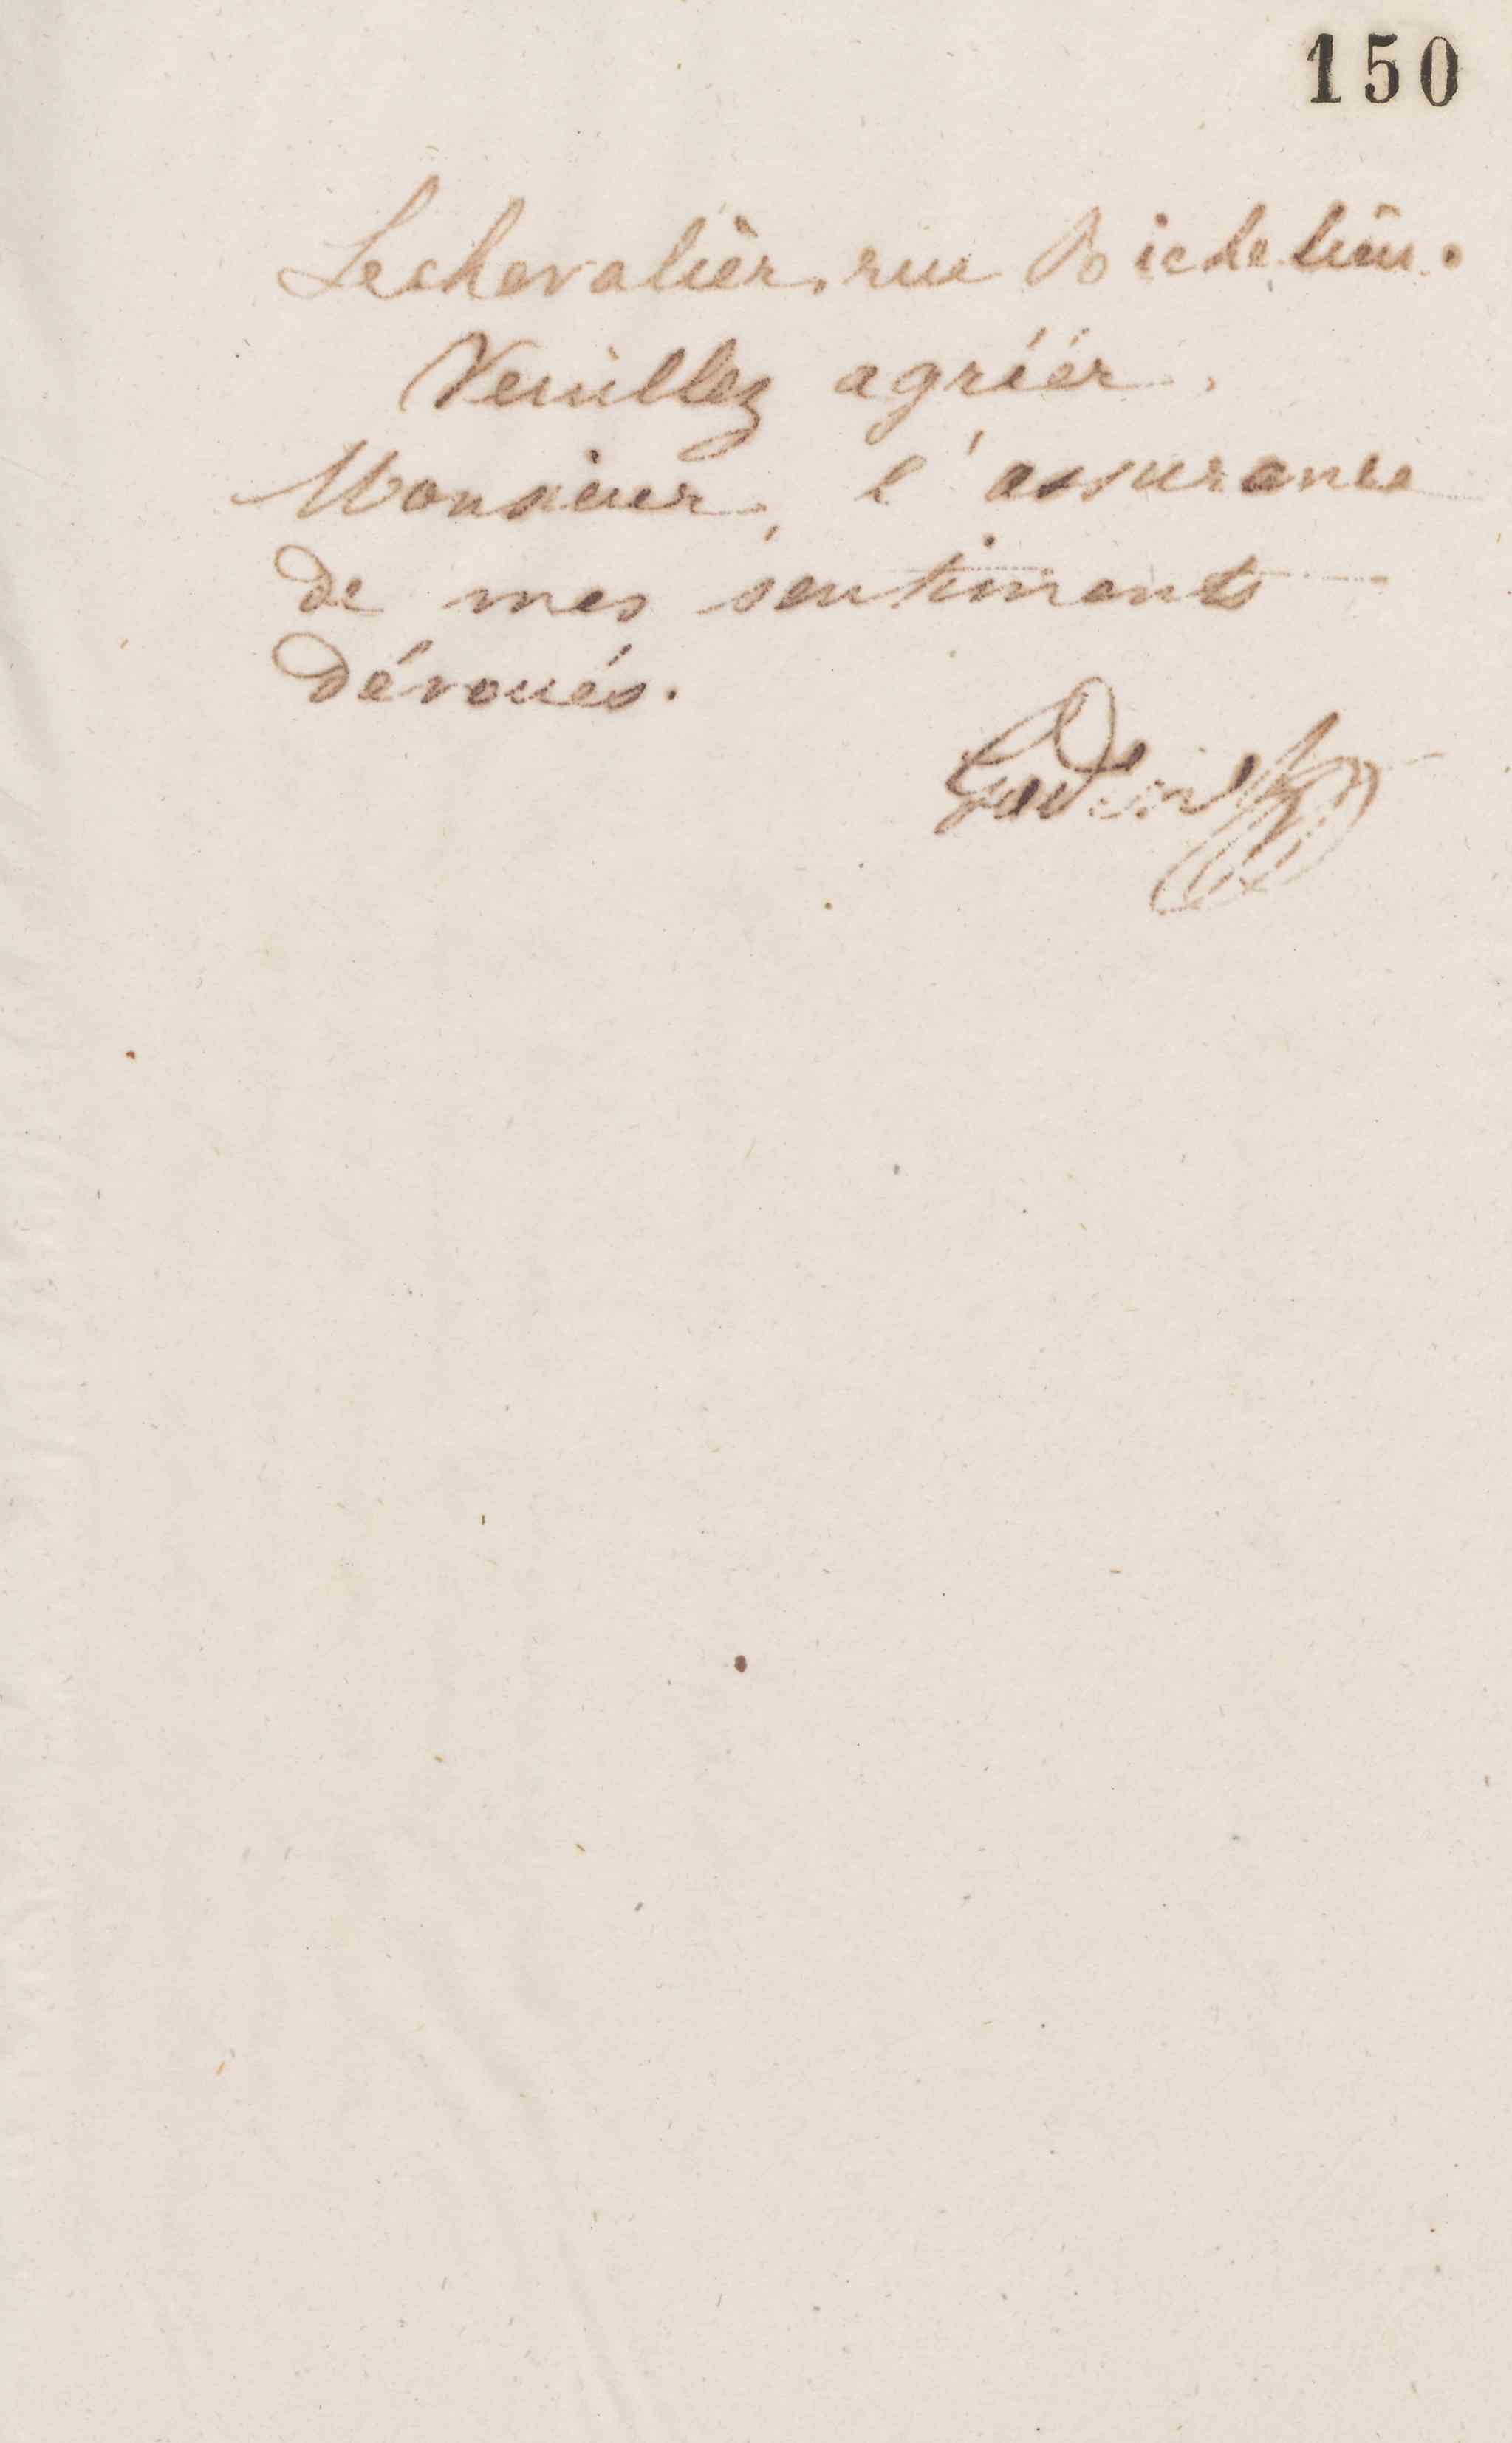 150
Lechevalier, rue Richelieu.
Veuillez agréer,
Monsieur, l'assurance
de mes sentiments
dévoués.
Godin